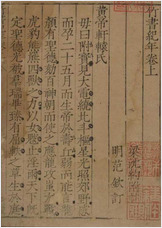 竹書紀年卷上
梁沈約附註
明范欽訂
黃帝軒轅氏
母曰附寶見大電繞北斗樞星光照郊野感
而孕二十五月而生帝於壽丘弱而能言龍
顏有聖德劾百神朝而使之應龍攻蚩尤戰
虎豹熊羆四獸之力以女魃止淫雨天下既
定聖德光被羣瑞畢臻有屈軼之草生於庭